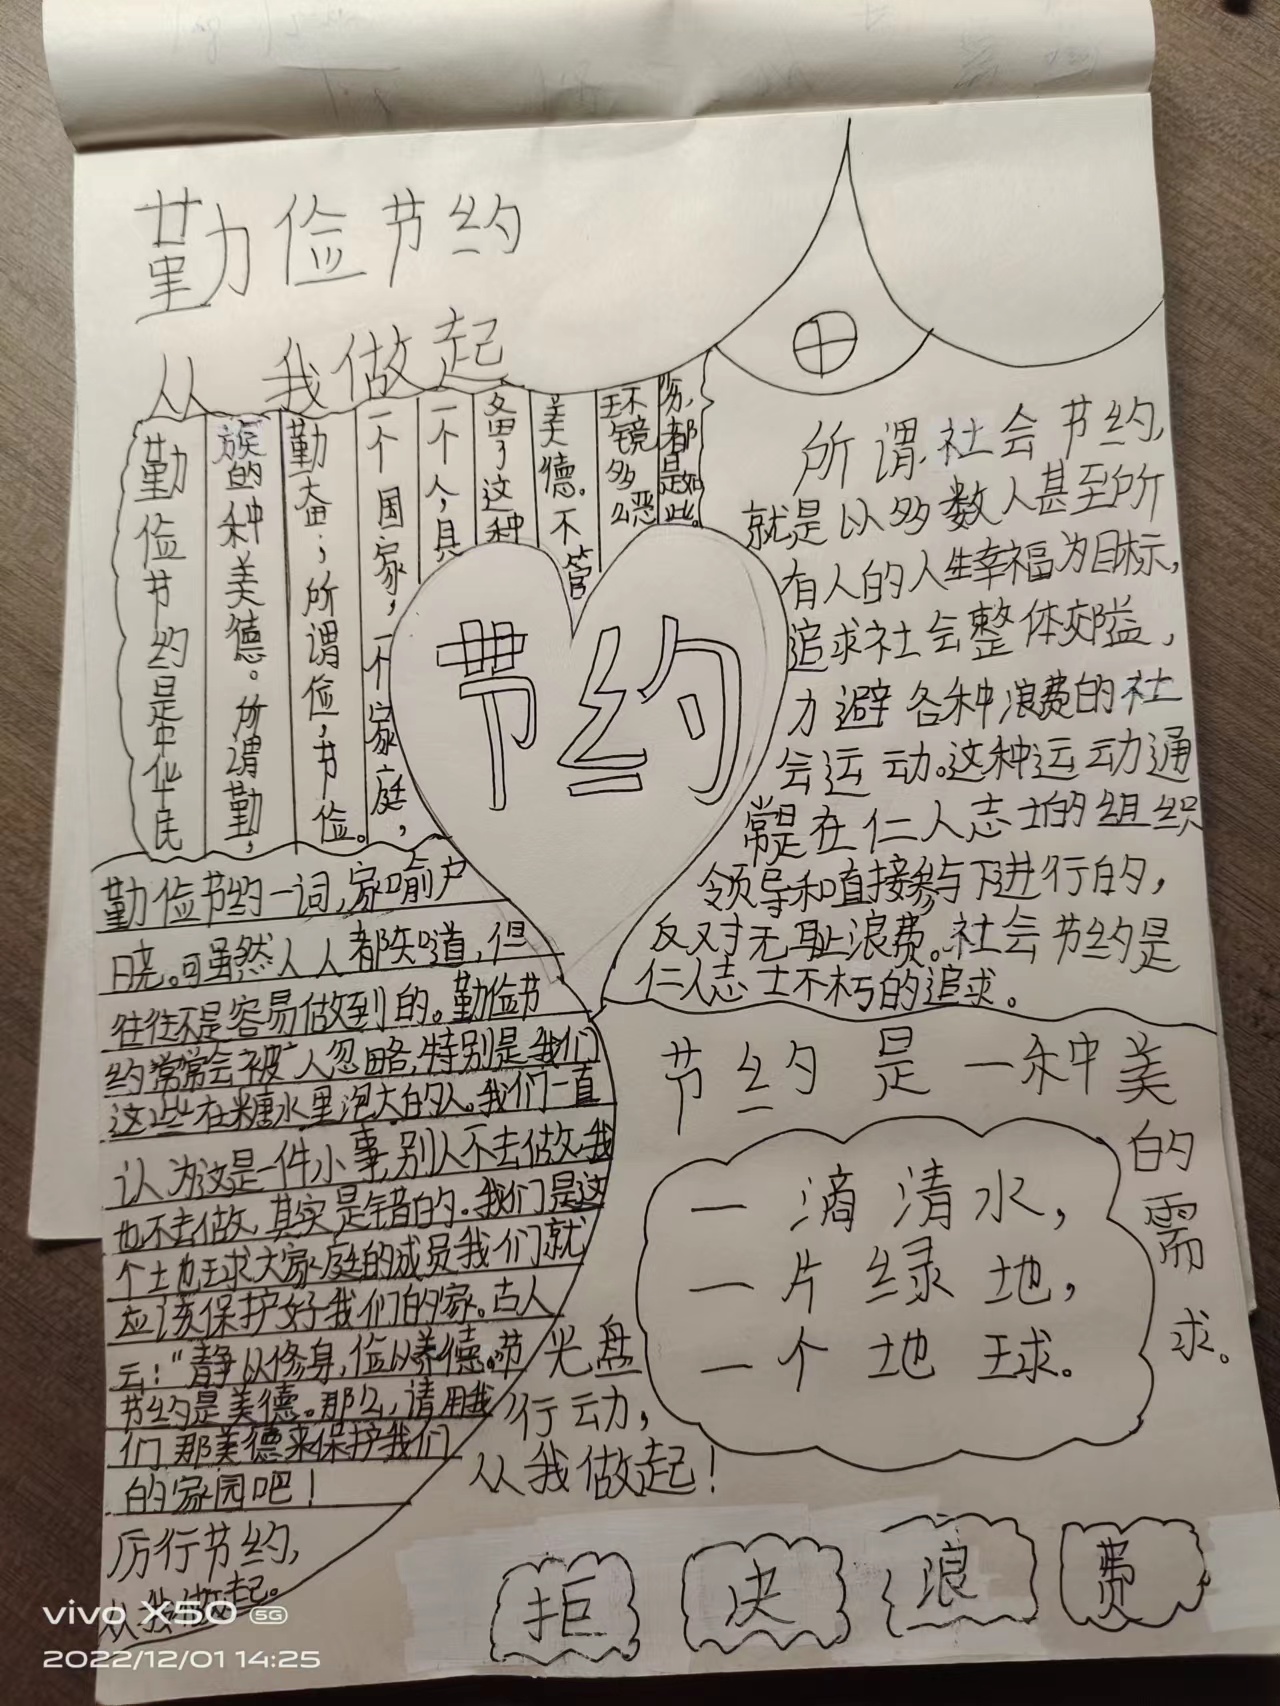 勤俭节约
从我做起
勤俭节约是中华民
族的种美德。所谓勤,
勤奋;所谓俭,节俭。
一个国家,一个家庭,
一个人,具
这种
美德.不管
环境多么恶
都是如此。
节约
所谓社会节约,
就是以多数人甚至所
有人的人生幸福为目标,
追求社会整体效益,
力避各种浪费的社
会运动。这种运动通
常是在仁人志士的组织
领导和直接参与下进行的,
反对无耻浪费。社会节约是
仁人志士不朽的追求。
勤俭节约一词,家喻户
晓。可虽然人人都知道,但
往往不是容易做到的。勤俭节
约常常会被人忽略,特别是我们
这些在糖水里泡大的人。我们一直
认为这是一件小事,别人不去做,我
也不去做,其实是错的。我们是这
个土地球大家庭的成员我们就
应该保护好我们的家。古人
云:“静以修身,俭以养德。”节
节约是美德。那么,请用我
们那美德来保护我们
的家园吧!
厉行节约,
从我做起。
节约是一种美
的需求。
一滴清水,
一片绿地,
一个地球。
光盘
行动,
从我做起!
拒决浪费
vivo X50 5G
2022/12/01 14:25